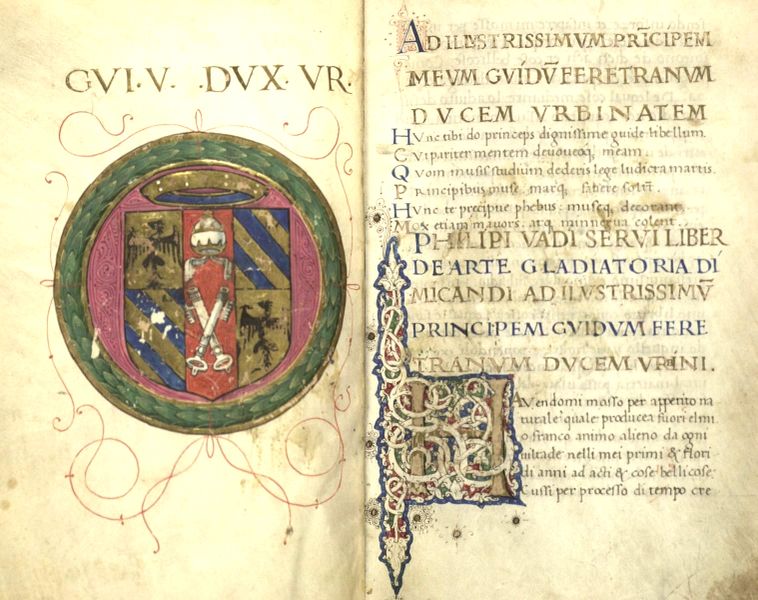 GVI · V · DVX · VR ·
AD ILLVSTRISSIMVM PRĪCIPEM
MEVM GVIDŪ FERETRANVM
DVCEM VRBINATEM
Hunc tibi do princeps dignissime guide libellum.
Cui pariter mentem deuoueoq; meam.
Quom musis studium dederis lege ludicra martis.
Principibus muse, marq, fauere solent.
Hunc te precipue phebus; museq, decorant
Mox etiam mauors. atq, minerua colent.
PHILIPI VADI SERVI LIBER
DE ARTE GLADIATORIA DĪ
MICANDI AD ILVSTRISSIMŪ
PRINCIPEM GVIDVM FERE
TRANVM DVCEM VRBINI.
AVendomi mosso per apperito na
turale quale producea fuori el mi
o franco animo alieno da ogni
uiltade nelli mei primi & flori
di anni ad acti & cose bellicose.
Cussi per processo di tempo cre